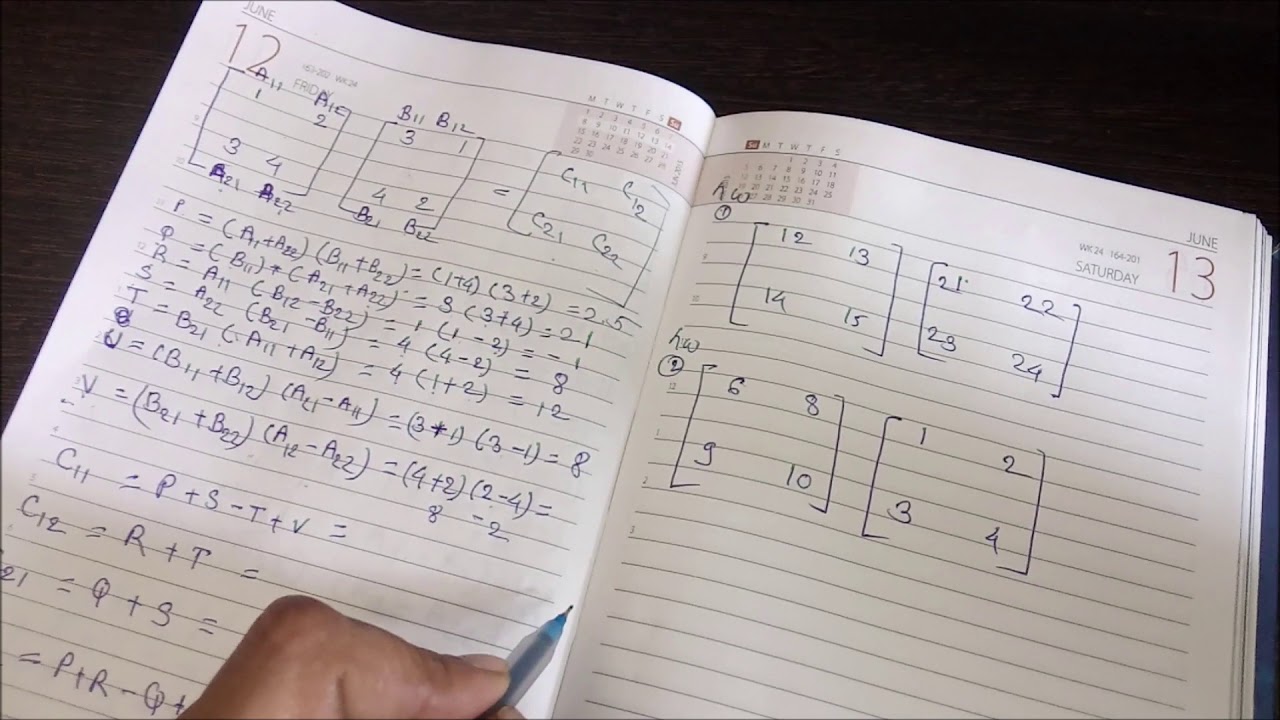 JUNE
12
163-202 WK 24
FRIDAY
M T W T F S Su
A11 A12
1 2
3 4
A21 A22
B11 B12
3 1
4 2
B21 B22
=
C11 C12
C21 C22
P = (A11+A22) (B11+B22) = (1+4) (3+2) = 25
Q = (B11) * (A21+A22) = 3 (3+4) = 21
R = A11 (B12-B22) = 1 (1-2) = -1
S = A22 (B21-B11) = 4 (4-2) = 8
T = B21 (A11+A12) = 4 (1+2) = 12
U = (B11+B12) (A21-A11) = (3+1) (3-1) = 8
V = (B21+B22) (A12-A22) = (4+2) (2-4) =
8 -2
C11 = P+S-T+V =
C12 = R+T =
21 = Q+S =
= P+R-Q+
JUNE
13
WK 24 164-201
SATURDAY
Su M T W T F S
h.w
①
12 13
14 15
21 22
23 24
h.w
②
6 8
9 10
1 2
3 4